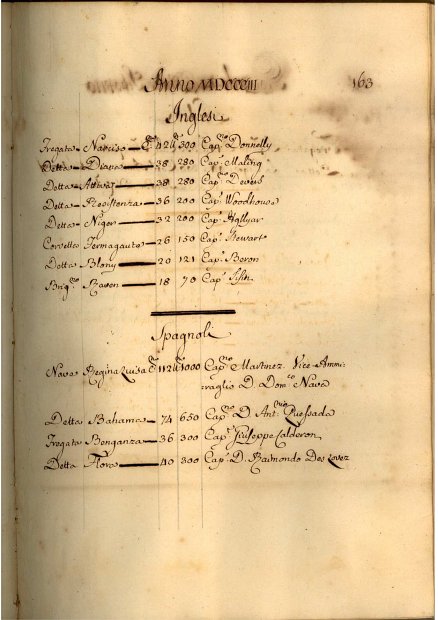 Anno MDCCCIII 163
Inglesi
Fregata Narciso C. 42 U. 300 Capno Donnelly
Detta Diana 38 280 Capno Maling
Detta 38 280 Capo
Detta Resistenza 36 200 Capo Woodhouse
Detta Niger 32 200 Capo Hyllyar
Corvetta Termagaute 26 150 Capo Stewart
Detta Blony 20 121 Capo Beron
Brigno Raven 18 70 Capo
Spagnoli
Nave Regina Luisa C. 112 U. 1000 Capno Martinez Vice-Ammi:
raglio D. Domco Nava
Detta Bahama 74 650 Capno D. Antnio Quessada
Fregata Bonganza 36 300 Capo Giuseppe Calderon
Detta Flora 40 300 Capo D. Raimondo Des